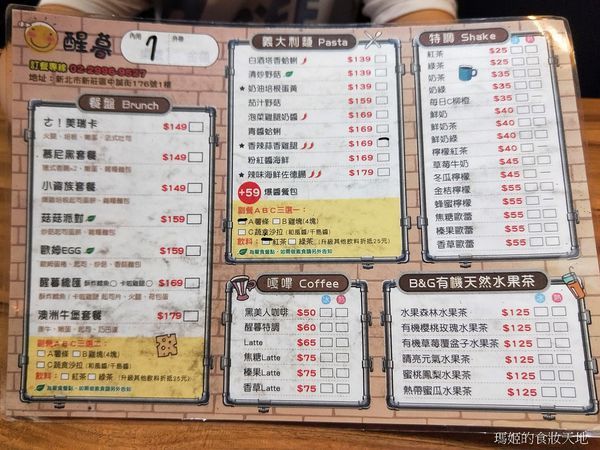 醒暮
內用 7 外帶
訂餐專線 02-2996-9527
地址：新北市新莊區中誠街176號1樓
餐盤 Brunch
ㄊ！美瑞卡 $149
慕尼黑套餐 $149
小資族套餐 $149
菇菇派對 $159
歐姆EGG $159
醒暮總匯 $169
澳洲牛堡套餐 $179
副餐ABC三選一：
A薯條 B雞塊(4塊)
C蔬拿沙拉(和風醬/千島醬)
飲料：紅茶 綠茶 (升級其他飲料折抵25元)
義大利麵 Pasta
白酒塔香蛤蜊 $139
清炒野菇 $139
★奶油培根蛋黃 $139
茄汁野菇 $159
泡菜雞腿奶醬 $159
青醬蛤蜊 $169
★香辣蒜香雞腿 $169
粉紅醬海鮮 $169
★辣味海鮮佐德腸 $179
+59 爆漿餐包
副餐ABC三選一：
A薯條 B雞塊(4塊)
C蔬拿沙拉(和風醬/千島醬)
飲料：紅茶 綠茶 (升級其他飲料折抵25元)
為蘭食餐點，如需做食請另外告知
特調 Shake
紅茶 $25
綠茶 $25
奶茶 $35
奶綠 $35
每日C柳橙 $35
鮮奶 $40
鮮奶茶 $40
鮮奶綠 $40
檸檬紅茶 $40
草莓牛奶 $45
冬瓜檸檬 $45
金桔檸檬 $45
蜂蜜檸檬 $45
焦糖歐蕾 $55
榛果歐蕾 $55
香草歐蕾 $55
嗄嗶 Coffee
黑美人咖啡 $50
醒暮特調 $60
Latte $65
焦糖Latte $75
榛果Latte $75
香草Latte $75
B&G有機天然水果茶
水果森林水果茶 $125
有機櫻桃玫瑰水果茶 $125
有機草莓覆盆子水果茶 $125
晴亮元氣水果茶 $125
蜜桃鳳梨水果茶 $125
熱帶蜜瓜水果茶 $125
瑪姬的食妝天地